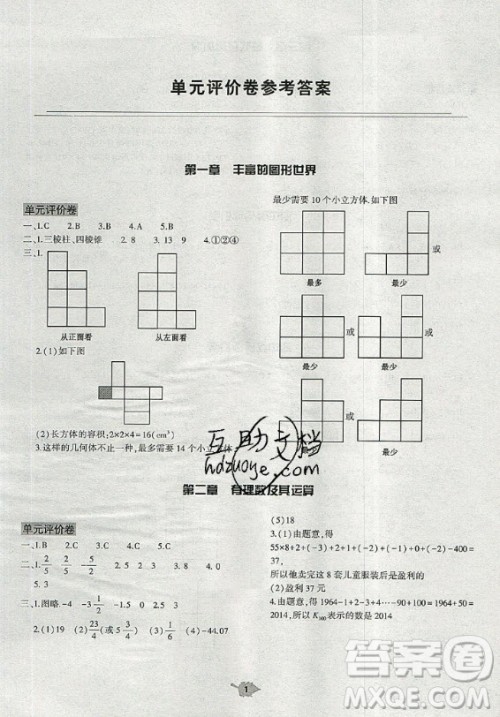 单元评价卷参考答案
第一章 丰富的图形世界
单元评价卷
一、1.C 2.B 3.B 4.D 5.B
二、1.三棱柱、四棱锥 2.8 3. 13 9 4.①②④
三、1.
从正面看
从左面看
2.(1)如下图
(2)长方体的容积:2×2×4=16(cm³)
3.这样的几何体不只一种,最多需要 14 个小立方体
最少需要 10 个小立方体.如下图
最多
或
最少
或
最少
或
最少
或
最少
第二章 有理数及其运算
单元评价卷
一、1.B 2.C 3.C 4.B
二、1. 2/5 2/5 5/2 2. 4 3. 1/9 4.
5. 3
三、1.图略 -4 -3 -1.5
2.(1)19 (2)23/4 (或5 3/4) (3) (4)-44.07
(5)18
3.(1)由题意,得
55×8+2+(-3)+2+1+(-2)+(-1)+0+(-2)-400=
37,
所以他卖完这 8 套儿童服装后是盈利的
(2)盈利 37 元
4.由题意,得 1964-1+2-3+4-…-90+100=
2014,所以 K₁₀₀表示的数是 2014
1
互助文档
hdzuoye.com
答案圈
MXQE.COM